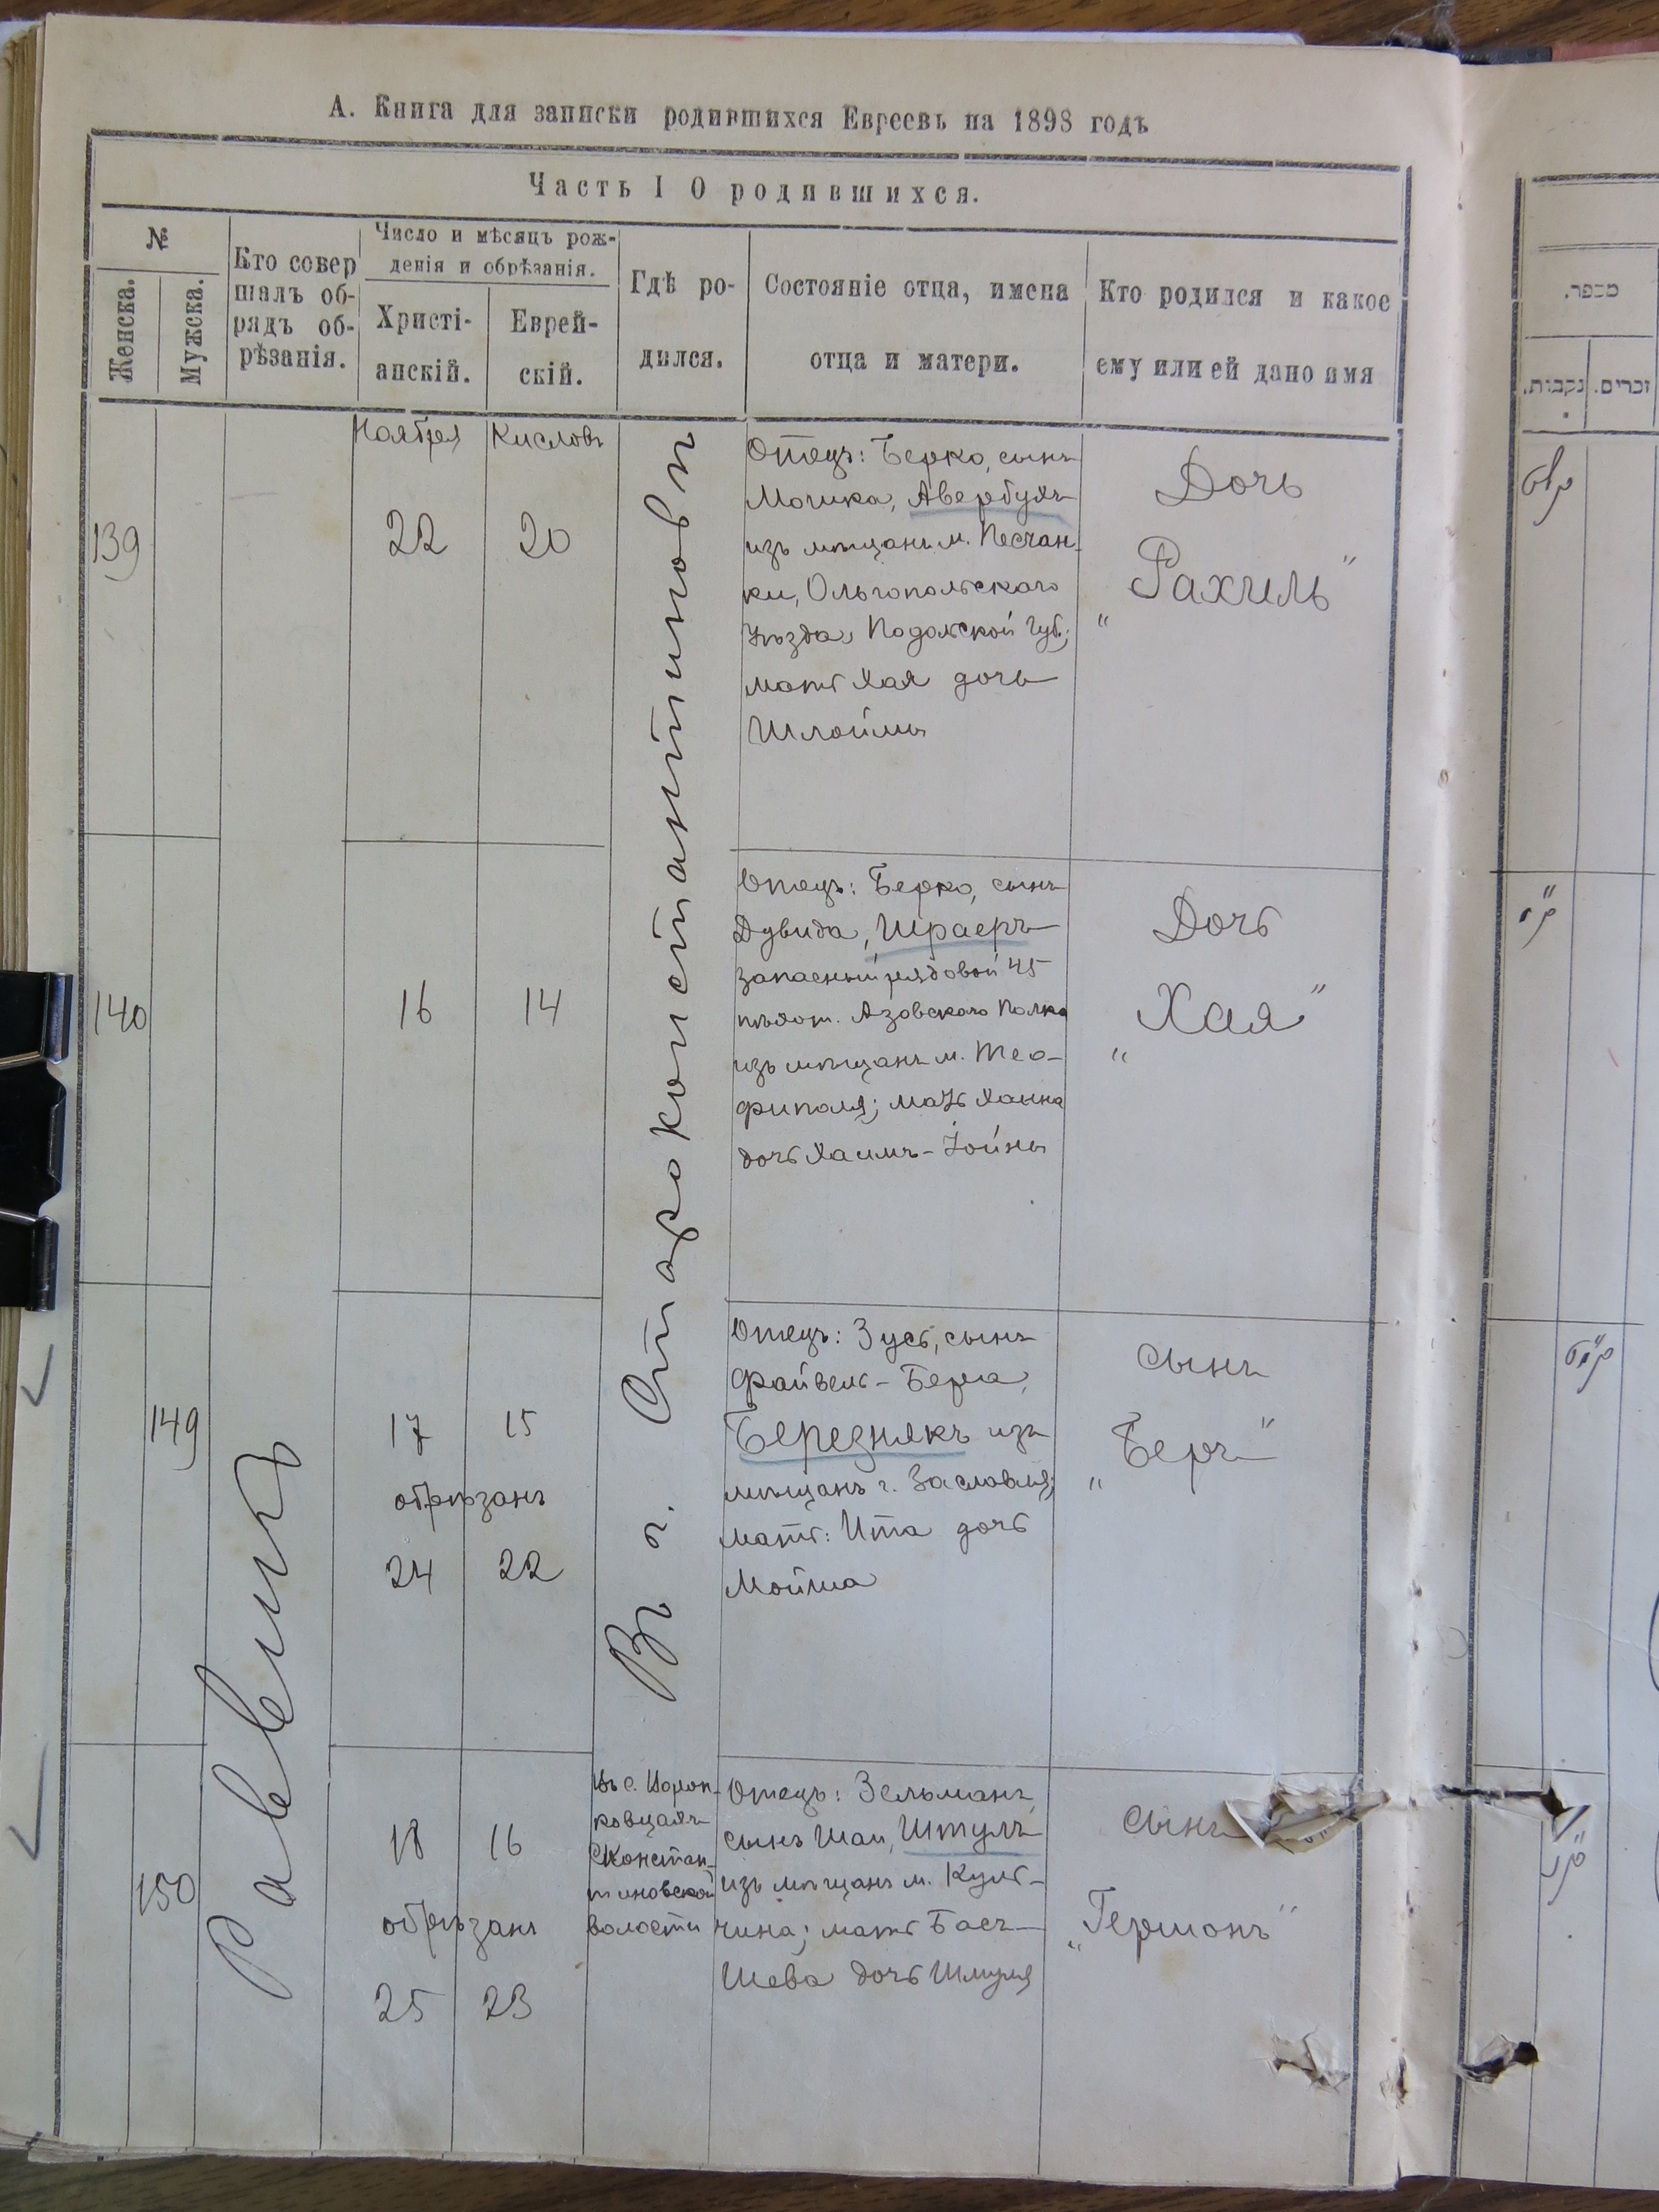 А. Книга для записки родившихся Евреевъ на 1898 годъ
Часть I О родившихся.
№
Женска.
Мужска.
Кто совер
шалъ об-
рядъ об-
рѣзанія.
Число и мѣсяцъ рож-
денія и обрѣзанія.
Христі-
анскій.
Еврей-
скій.
Гдѣ ро-
дился.
Состояніе отца, имена
отца и матери.
Кто родился и какое
ему или ей дано имя
Раввинъ
Въ г. Староконстантиновѣ
Ноября
Кисловъ
139
22
20
Отецъ: Берко, сынъ
Мошка, Авербухъ
изъ мѣщанъ м. Песчан-
ки, Ольгопольскаго
Уѣзда, Подольской Губ;
мать Хая дочь
Шлоймы
Дочь
„Рахиль"
140
16
14
Отецъ: Берко, сынъ
Дувида, Шраеръ
запасный рядовой 45
пѣхот. Азовскаго Полка
изъ мѣщанъ м. Тео-
фиполя; мать Хаина
дочь Хаимъ-Іойны
Дочь
„Хая"
149
17
15
обрѣзанъ
24
22
Отецъ: Зусь, сынъ
Файвель-Бера,
Березнякъ изъ
мѣщанъ г. Заславля;
мать: Ита дочь
Мойша
Сынъ
„Беръ"
150
18
16
обрѣзанъ
25
23
Въ с.
ковцахъ
Констан-
тиновской
волости
Отецъ: Зельманъ
сынъ Шаи, Штулъ
изъ мѣщанъ м. Куль-
чина; мать Бася-
Шева дочь Шмуля
Сынъ
„Гершонъ"
מספר.
נקבות.
זכרים.